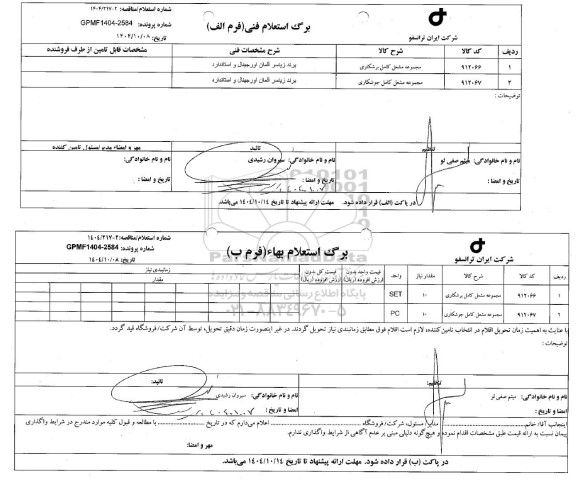 شماره استعلام/مناقصه: ۱۴۰۴/۲۱۷-۲
شماره پرونده: GPMF1404-2584
تاریخ: ۱۴۰۴/۱۰/۰۸
برگ استعلام فنی(فرم الف)
شرکت ایران ترانسفو
ردیف کد کالا شرح کالا شرح مشخصات فنی مشخصات قابل تامین از طرف فروشنده
۱ ۹۱۲۰۶۶ مجموعه مشعل کامل برشکاری برند زینسر آلمان اورجینال و استاندارد
۲ ۹۱۲۰۶۷ مجموعه مشعل کامل جوشکاری برند زینسر آلمان اورجینال و استاندارد
توضیحات :
تنظیم: تائید: مهر و امضاء مدیر/مسئول تامین کننده
نام و نام خانوادگی: میثم صفی لو نام و نام خانوادگی: سیروان رشیدی نام و نام خانوادگی:
تاریخ و امضا : تاریخ و امضا : تاریخ و امضا :
در پاکت (الف) قرار داده شود. مهلت ارائه پیشنهاد تا تاریخ ۱۴۰۴/۱۰/۱۴ می‌باشد.
شماره استعلام/مناقصه: ۱۴۰۴/۲۱۷-۲
شماره پرونده: GPMF1404-2584
تاریخ: ۱۴۰۴/۱۰/۰۸
برگ استعلام بهاء(فرم ب)
شرکت ایران ترانسفو
ردیف کد کالا شرح کالا مقدار نیاز واحد قیمت واحد بدون ارزش افزوده (ریال) قیمت کل بدون ارزش افزوده (ریال) زمانبندی نیاز
مقدار
۱ ۹۱۲۰۶۶ مجموعه مشعل کامل برشکاری ۱۰ SET
۲ ۹۱۲۰۶۷ مجموعه مشعل کامل جوشکاری ۱۰ PC
پایگاه اطلاع رسانی مناقصه و مزایده
۰۲۱-۸۸۳۴۹۶۷۰-۵
با عنایت به اهمیت زمان تحویل اقلام در انتخاب تامین‌کننده، لازم است اقلام فوق مطابق زمانبندی نیاز تحویل گردند. در غیر اینصورت زمان دقیق تحویل، توسط آن شرکت/فروشگاه قید گردد.
توضیحات:
تنظیم: تائید:
نام و نام خانوادگی: میثم صفی لو نام و نام خانوادگی: سیروان رشیدی
امضا و تاریخ : امضا و تاریخ :
اینجانب آقا/ خانم مدیر/ مسئول، شرکت/ فروشگاه اعلام می‌دارم که در تاریخ با مطالعه و قبول کلیه موارد مندرج در شرایط واگذاری
پیمان نسبت به ارائه قیمت طبق مشخصات اقدام نموده و هیچ‌گونه دلیلی مبنی بر عدم آگاهی از شرایط واگذاری ندارم.
مهر و امضا:
در پاکت (ب) قرار داده شود. مهلت ارائه پیشنهاد تا تاریخ ۱۴۰۴/۱۰/۱۴ می‌باشد.